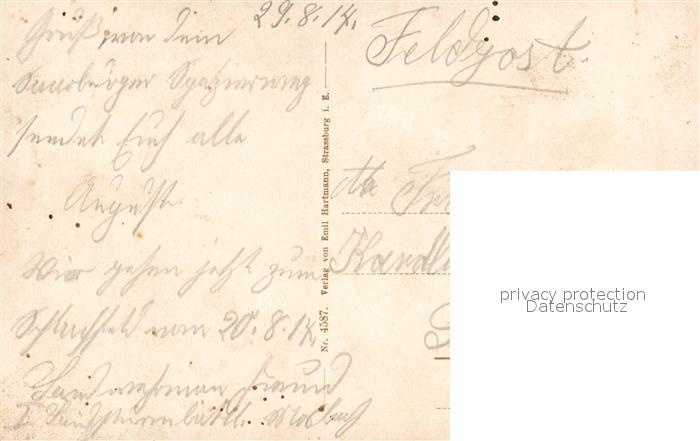 29.8.14.
Gruß von dem
Saarburger Spazierweg
sendet Euch alle
August
Wir gehen jetzt zum
Schlachtfeld vom 20.8.14.
Landwehrmann Freund
I Landsturmbatl. Mosbach
Nr. 4587. Verlag von Emil Hartmann, Strassburg i. E.
Feldpost.
privacy protection
Datenschutz